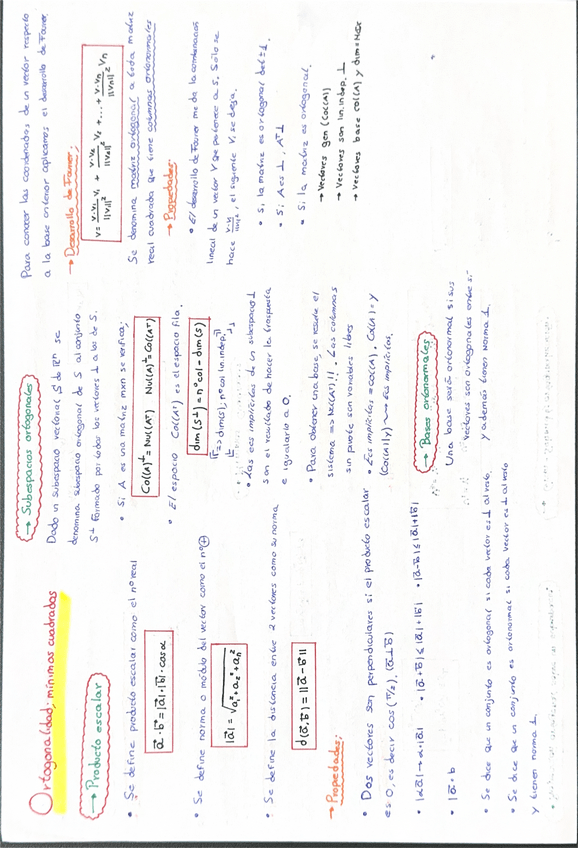 Ortogonalidad; mínimos cuadrados
→ Producto escalar
• Se define producto escalar como el nº real
a⃗ · b⃗ = |a⃗| · |b⃗| · cos α
• Se define norma o módulo del vector como el nº ⊕
|a⃗| = √(a₁² + a₂² + aₙ²
• Se define la distancia entre 2 vectores como su norma
d(a⃗, b⃗) = ||a⃗ - b⃗||
→ Propiedades:
• Dos vectores son perpendiculares si el producto escalar
es 0, es decir cos (π/2). (a⃗ ⊥ b⃗)
• |αa⃗| → α · |a⃗| • |a⃗ + b⃗| ≤ |a⃗| + |b⃗| • |a⃗ - b⃗| ≤ |a⃗| + |b⃗|
• |a⃗ · b
• Se dice que un conjunto es ortogonal si cada vector es ⊥ al resto
• Se dice que un conjunto es ortonormal si cada vector es ⊥ al resto
y tienen norma 1.
→ Subespacios ortogonales
Dado un subespacio vectorial S de ℝⁿ se
denomina subespacio ortogonal de S al conjunto
S⊥ formado por todos los vectores ⊥ a los de S.
• Si A es una matriz mxn se verifica;
Col(A)⊥ = Nul(Aᵀ) Nul(A)⊥ = Col(Aᵀ)
• El espacio Col(Aᵀ) es el espacio fila.
dim(S⊥) = nº col - dim(S)
dim(S); nº col lin. indep.
• Las ecs implícitas de un subespacio ⊥
son el resultado de hacer la traspuesta
e igualarlo a 0.
• Para obtener una base se resuelve el
sistema → Nul(Aᵀ)!! . Las columnas
sin pivote son variables libres
• Ecs implícitas = col(A). Col(A) = y
(Col(A)|y) → Ecs implícitas.
→ Bases ortonormales
Una base será ortonormal si sus
vectores son ortogonales entre si
y además tienen norma 1.
Para conocer las coordenadas de un vector respecto
a la base anterior aplicamos el desarrollo de Fourier
→ Desarrollo de Fourier;
v = v·v₁/||v₁||² v₁ + v·v₂/||v₂||² v₂ + ... + v·vₙ/||vₙ||² vₙ
Se denomina matriz ortogonal a toda matriz
real cuadrada que tiene columnas ortonormales
→ Propiedades:
• El desarrollo de Fourier me da la combinación
lineal de un vector V que pertenece a S. Sólo se
hace , el siguiente V, se deja.
• Si la matriz es ortogonal det = ±1.
• Si A es ⊥, Aᵀ ⊥
• Si la matriz es ortogonal.
→ Vectores gen (Col(A))
→ Vectores son lin. indep. ⊥
→ Vectores base col(A) y dim = nºde